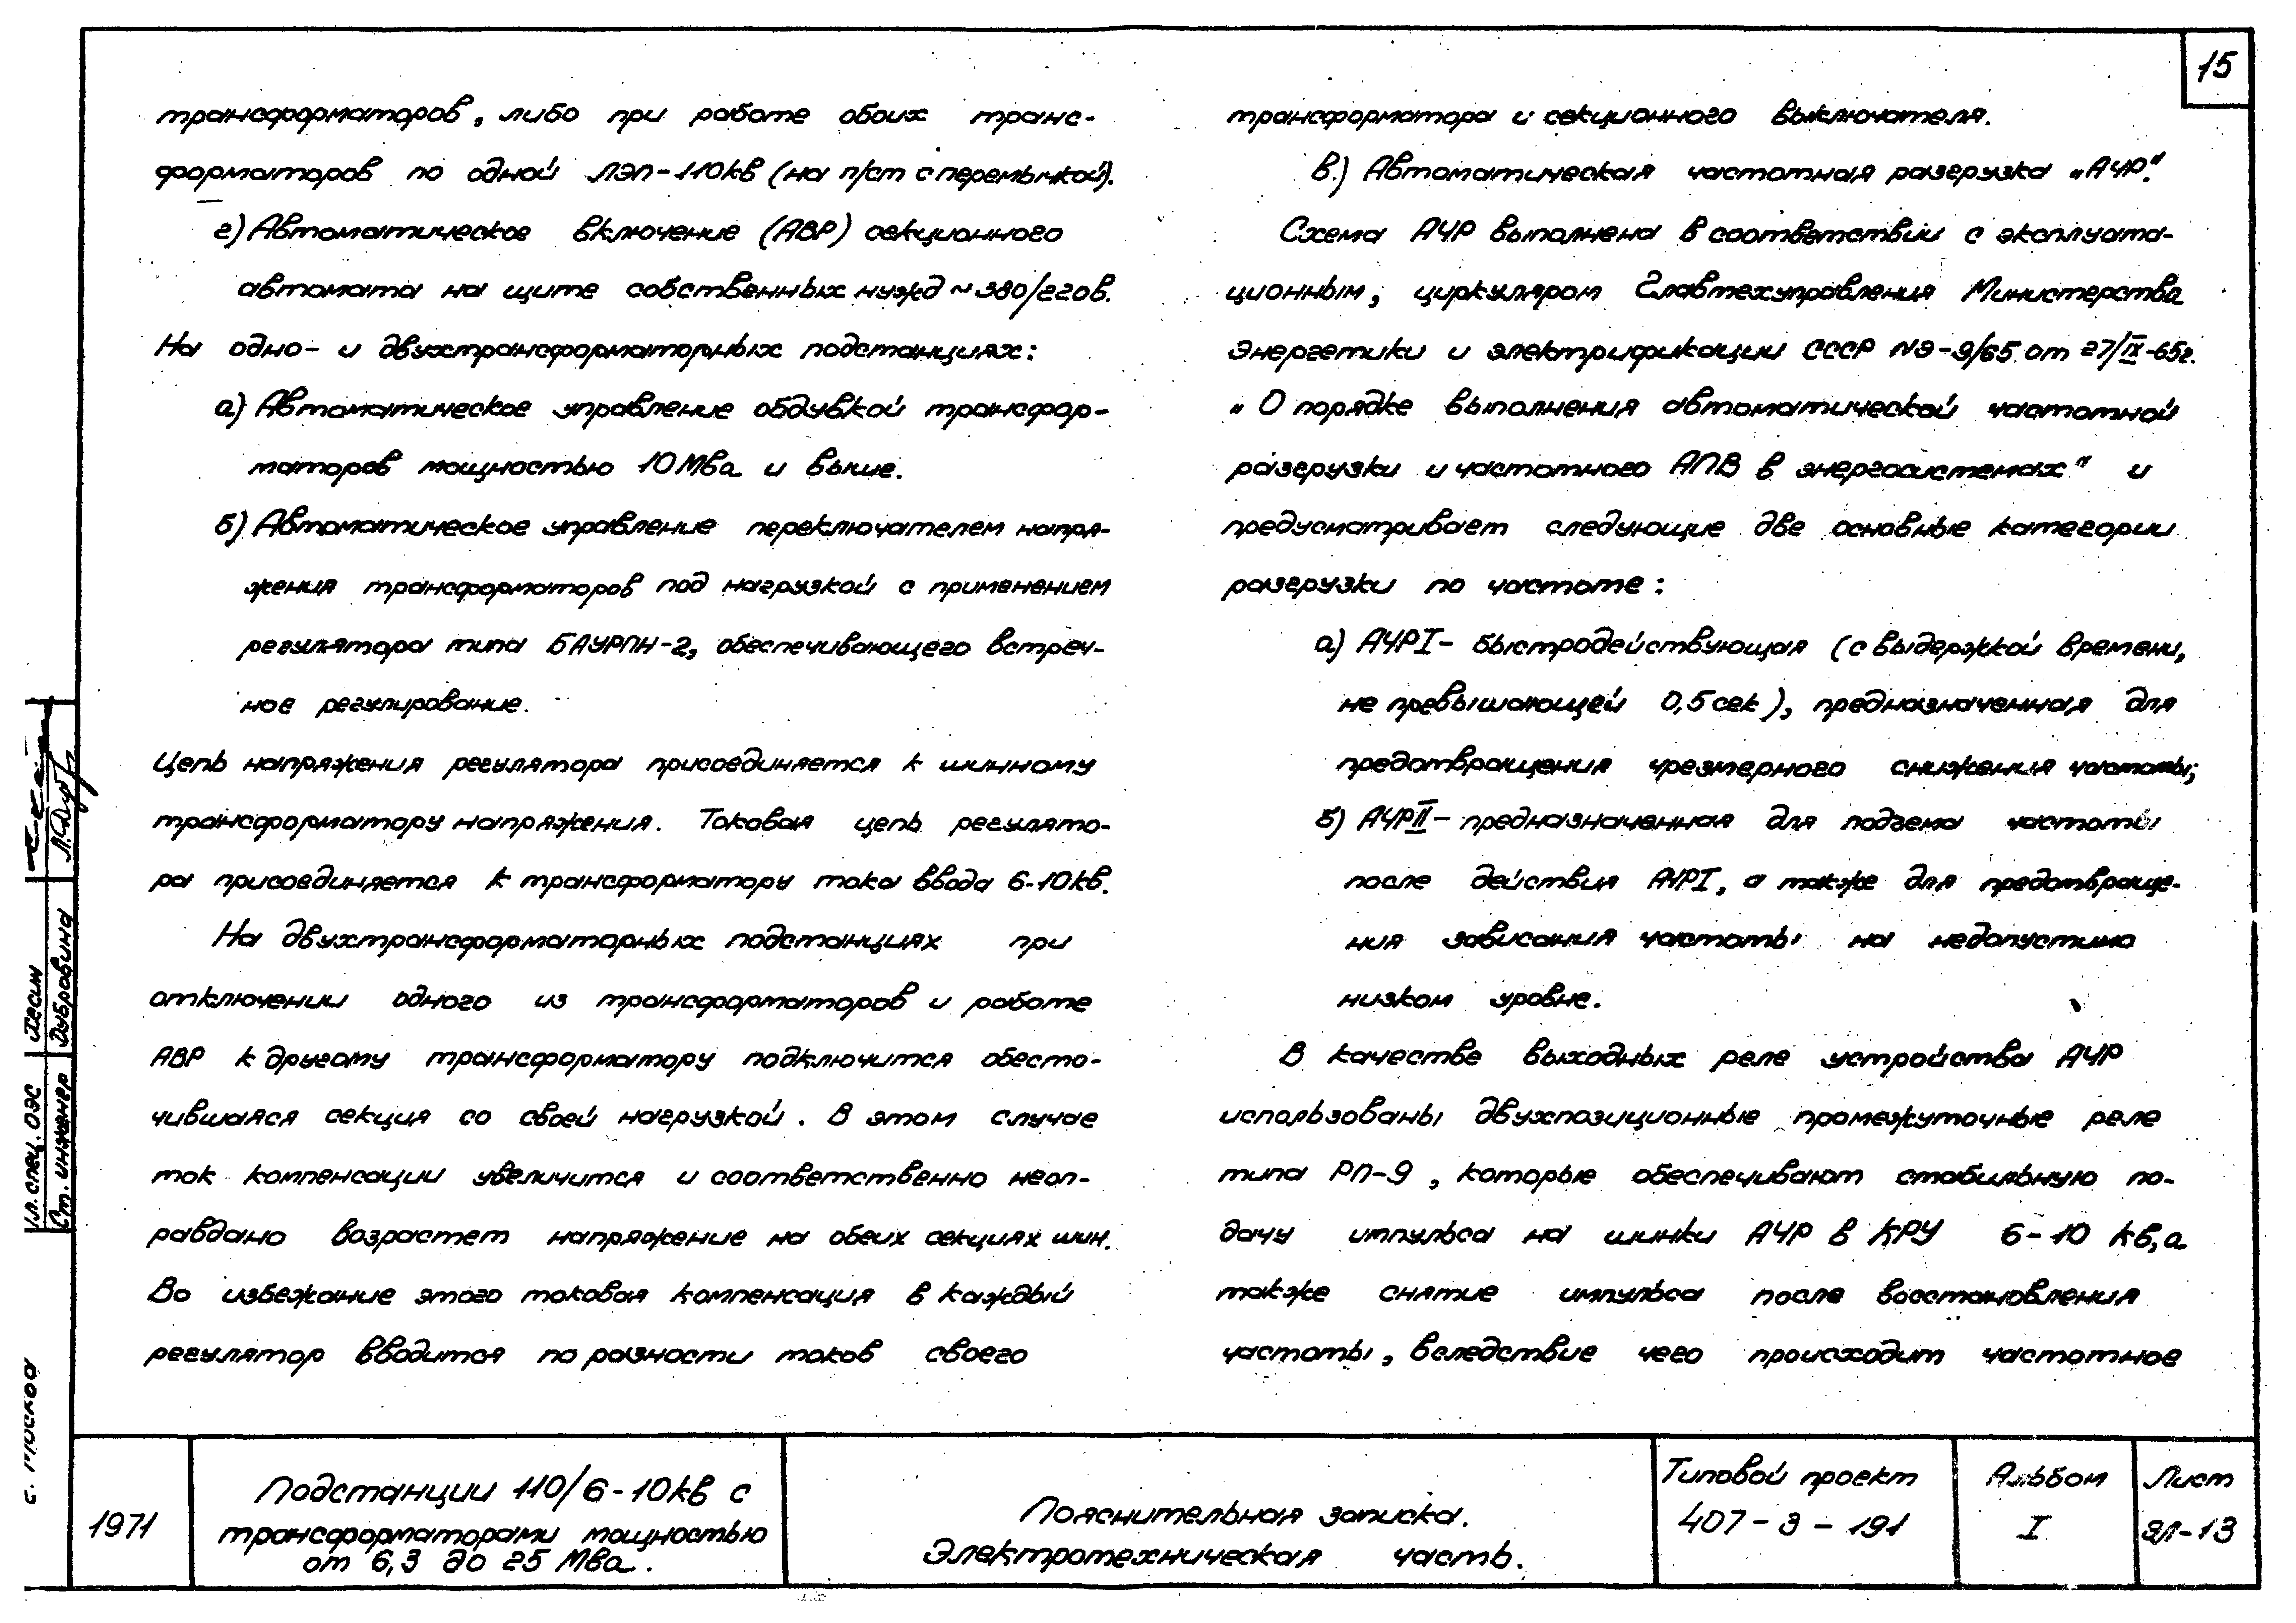 15
трансформаторов, либо при работе обоих транс-
форматоров по одной ЛЭП-110кв (на п/ст с перемычкой).
г) Автоматическое включение (АВР) секционного
автомата на щите собственных нужд ~380/220в.
На одно- и двухтрансформаторных подстанциях:
а) Автоматическое управление обдувкой трансфор-
маторов мощностью 10Мва и выше.
б) Автоматическое управление переключателем напря-
жения трансформаторов под нагрузкой с применением
регулятора типа БАУРПН-2, обеспечивающего встреч-
ное регулирование.
Цепь напряжения регулятора присоединяется к шинному
трансформатору напряжения. Токовая цепь регулято-
ра присоединяется к трансформатору тока ввода 6-10кв.
На двухтрансформаторных подстанциях при
отключении одного из трансформаторов и работе
АВР к другому трансформатору подключится обесто-
чившаяся секция со своей нагрузкой. В этом случае
ток компенсации увеличится и соответственно неоп-
равдано возрастет напряжение на обеих секциях шин.
Во избежание этого токовая компенсация в каждый
регулятор вводится по разности токов своего
трансформатора и секционного выключателя.
в.) Автоматическая частотная разгрузка „АЧР".
Схема АЧР выполнена в соответствии с эксплуата-
ционным, циркуляром Главтехуправления Министерства
Энергетики и электрификации СССР №Э-9/65 от 27/IX-65г.
„О порядке выполнения автоматической частотной
разгрузки и частотного АПВ в энергосистемах" и
предусматривает следующие две основные категории
разгрузки по частоте:
а) АЧРI- быстродействующая (с выдержкой времени,
не превышающей 0,5 сек), предназначенная для
предотвращения чрезмерного снижения частоты;
б) АЧРII- предназначенная для подъема частоты
после действия АЧРI, а также для предотвраще-
ния зависания частоты на недопустимо
низком уровне.
В качестве выходных реле устройства АЧР
использованы двухпозиционные промежуточные реле
типа РП-9, которые обеспечивают стабильную по-
дачу импульса на шинки АЧР в КРУ 6-10 кв, а
также снятие импульса после восстановления
частоты, вследствие чего происходит частотное
Гл. спец. ОЭС Хесин
Ст. инженер Дубровина
с. Москва
1971
Подстанции 110/6-10кв с
трансформаторами мощностью
от 6,3 до 25 Мва.
Пояснительная записка.
Электротехническая часть.
Типовой проект
407-3-191
Альбом
I
Лист
ЭЛ-13